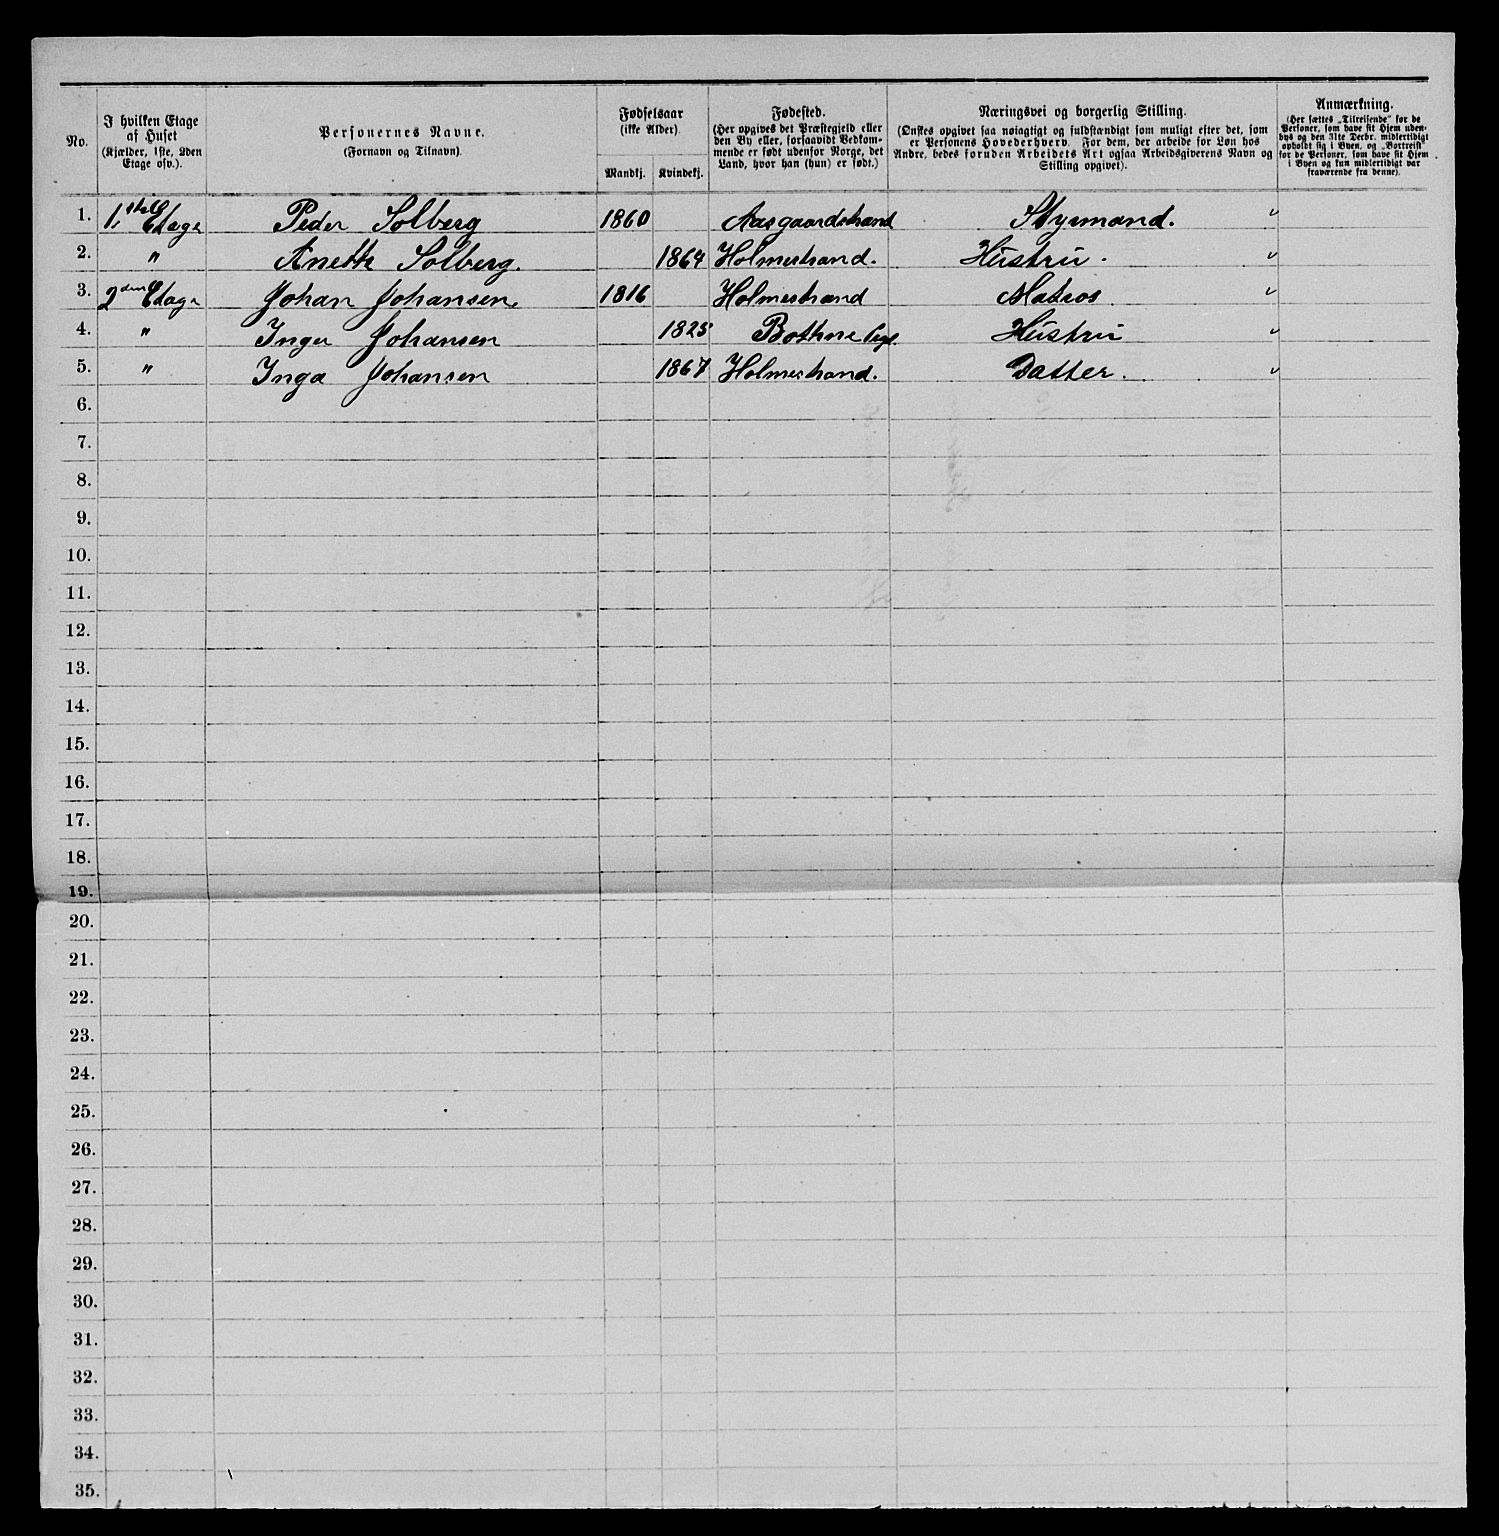 No.
I hvilken Etage af Huset
(Kjælder, 1ste, 2den Etage osv.).
Personernes Navne.
(Fornavn og Tilnavn).
Fødselsaar
(ikke Alder).
Mandkj.
Kvindekj.
Fødested.
(Her opgives det Præstegjeld eller
den By eller, forsaavidt Vedkom-
mende er født udenfor Norge, det
Land, hvor han (hun) er født.)
Næringsvei og borgerlig Stilling.
(Ønskes opgivet saa nøiagtigt og fuldstændigt som muligt efter det, som
er Personens Hovederhverv. For dem, der arbeide for Løn hos
Andre, bedes foruden Arbeidets Art ogsaa Arbeidsgiverens Navn og
Stilling opgivet).
Anmærkning.
(Her sættes „Tilreisende" for de
Personer, som have sit Hjem uden-
bys og den 31te Decbr. midlertidigt
opholdt sig i Byen, og „Bortreist"
for de Personer, som have sit Hjem
i Byen og kun midlertidigt var
fraværende fra denne).
1. 1ste Etage Peder Solberg 1860 Aasgaardstrand Styrmand. "
2. " Aneth Solberg. 1864 Holmestrand. Hustru. "
3. 2den Etage Johan Johansen. 1816 Holmestrand Matros "
4. " Inger Johansen 1825 Bothne Pgl. Hustru "
5. " Inga Johansen 1867 Holmestrand. Datter. "
6.
7.
8.
9.
10.
11.
12.
13.
14.
15.
16.
17.
18.
19.
20.
21.
22.
23.
24.
25.
26.
27.
28.
29.
30.
31.
32.
33.
34.
35.